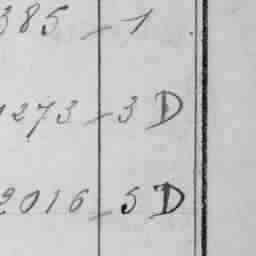 385 - 1
1273 - 3 D
2016 - 5 D